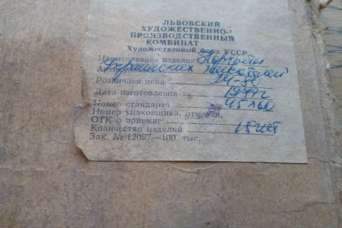 ЛЬВОВСКИЙ
ХУДОЖЕСТВЕННО-
ПРОИЗВОДСТВЕННЫЙ
КОМБИНАТ
Художественный фонд УССР
Наименование изделия Портреты
Украинских писателей
Розничная цена
Дата изготовления
Номер стандарта
Номер упаковщика,
ОТК о проверке
Количество изделий 15 шт
Зак. № 12087—100. тыс.